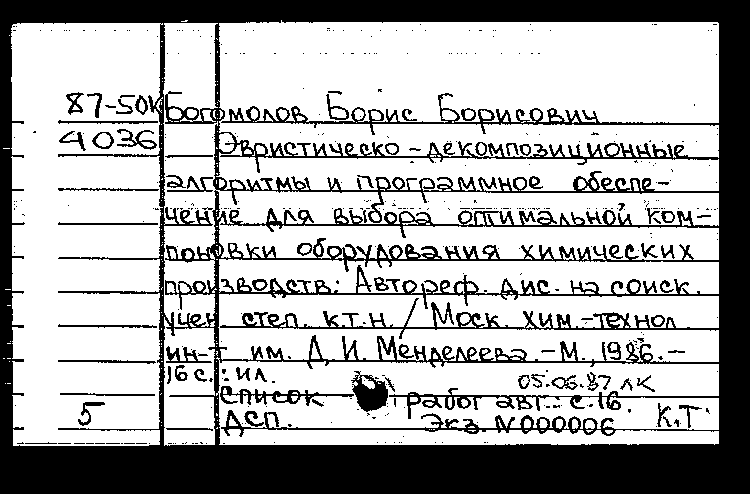 87-50К Богомолов, Борис Борисович
4036 Эвристическо-декомпозиционные
алгоритмы и программное обеспе-
чение для выбора оптимальной ком-
поновки оборудования химических
производств: Автореф. дис. на соиск.
учен. степ. к.т.н. / Моск. хим.-технол.
ин-т им. Д. И. Менделеева. - М., 1986. -
16 с.: ил.
05.06.87 ЛК
Список работ авт.: с. 16.
5 ДСП. Экз. N 000006 К.Т